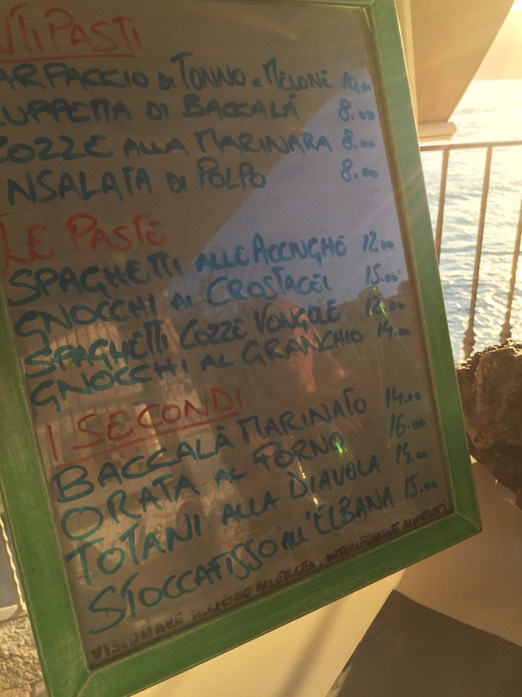 NTIPASTI
ARPACCIO DI TONNO e MELONE 10.00
ZUPPETTA DI BACCALÀ 8.00
COZZE ALLA MARINARA 8.00
INSALATA DI POLPO 8.00
LE PASTE
SPAGHETTI ALLE ACCIUGHE 12.00
GNOCCHI AI CROSTACEI 15.00
SPAGHETTI COZZE VONGOLE 12.00
GNOCCHI AL GRANCHIO 14.00
I SECONDI
BACCALÀ MARINATO 14.00
ORATA AL FORNO 16.00
TOTANI ALLA DIAVOLA 14.00
STOCCAFISSO ALL'ELBANA 15.00
VISIONARE IL LIBRO ALLERGENI, INTOLLERANZE ALIMENTI